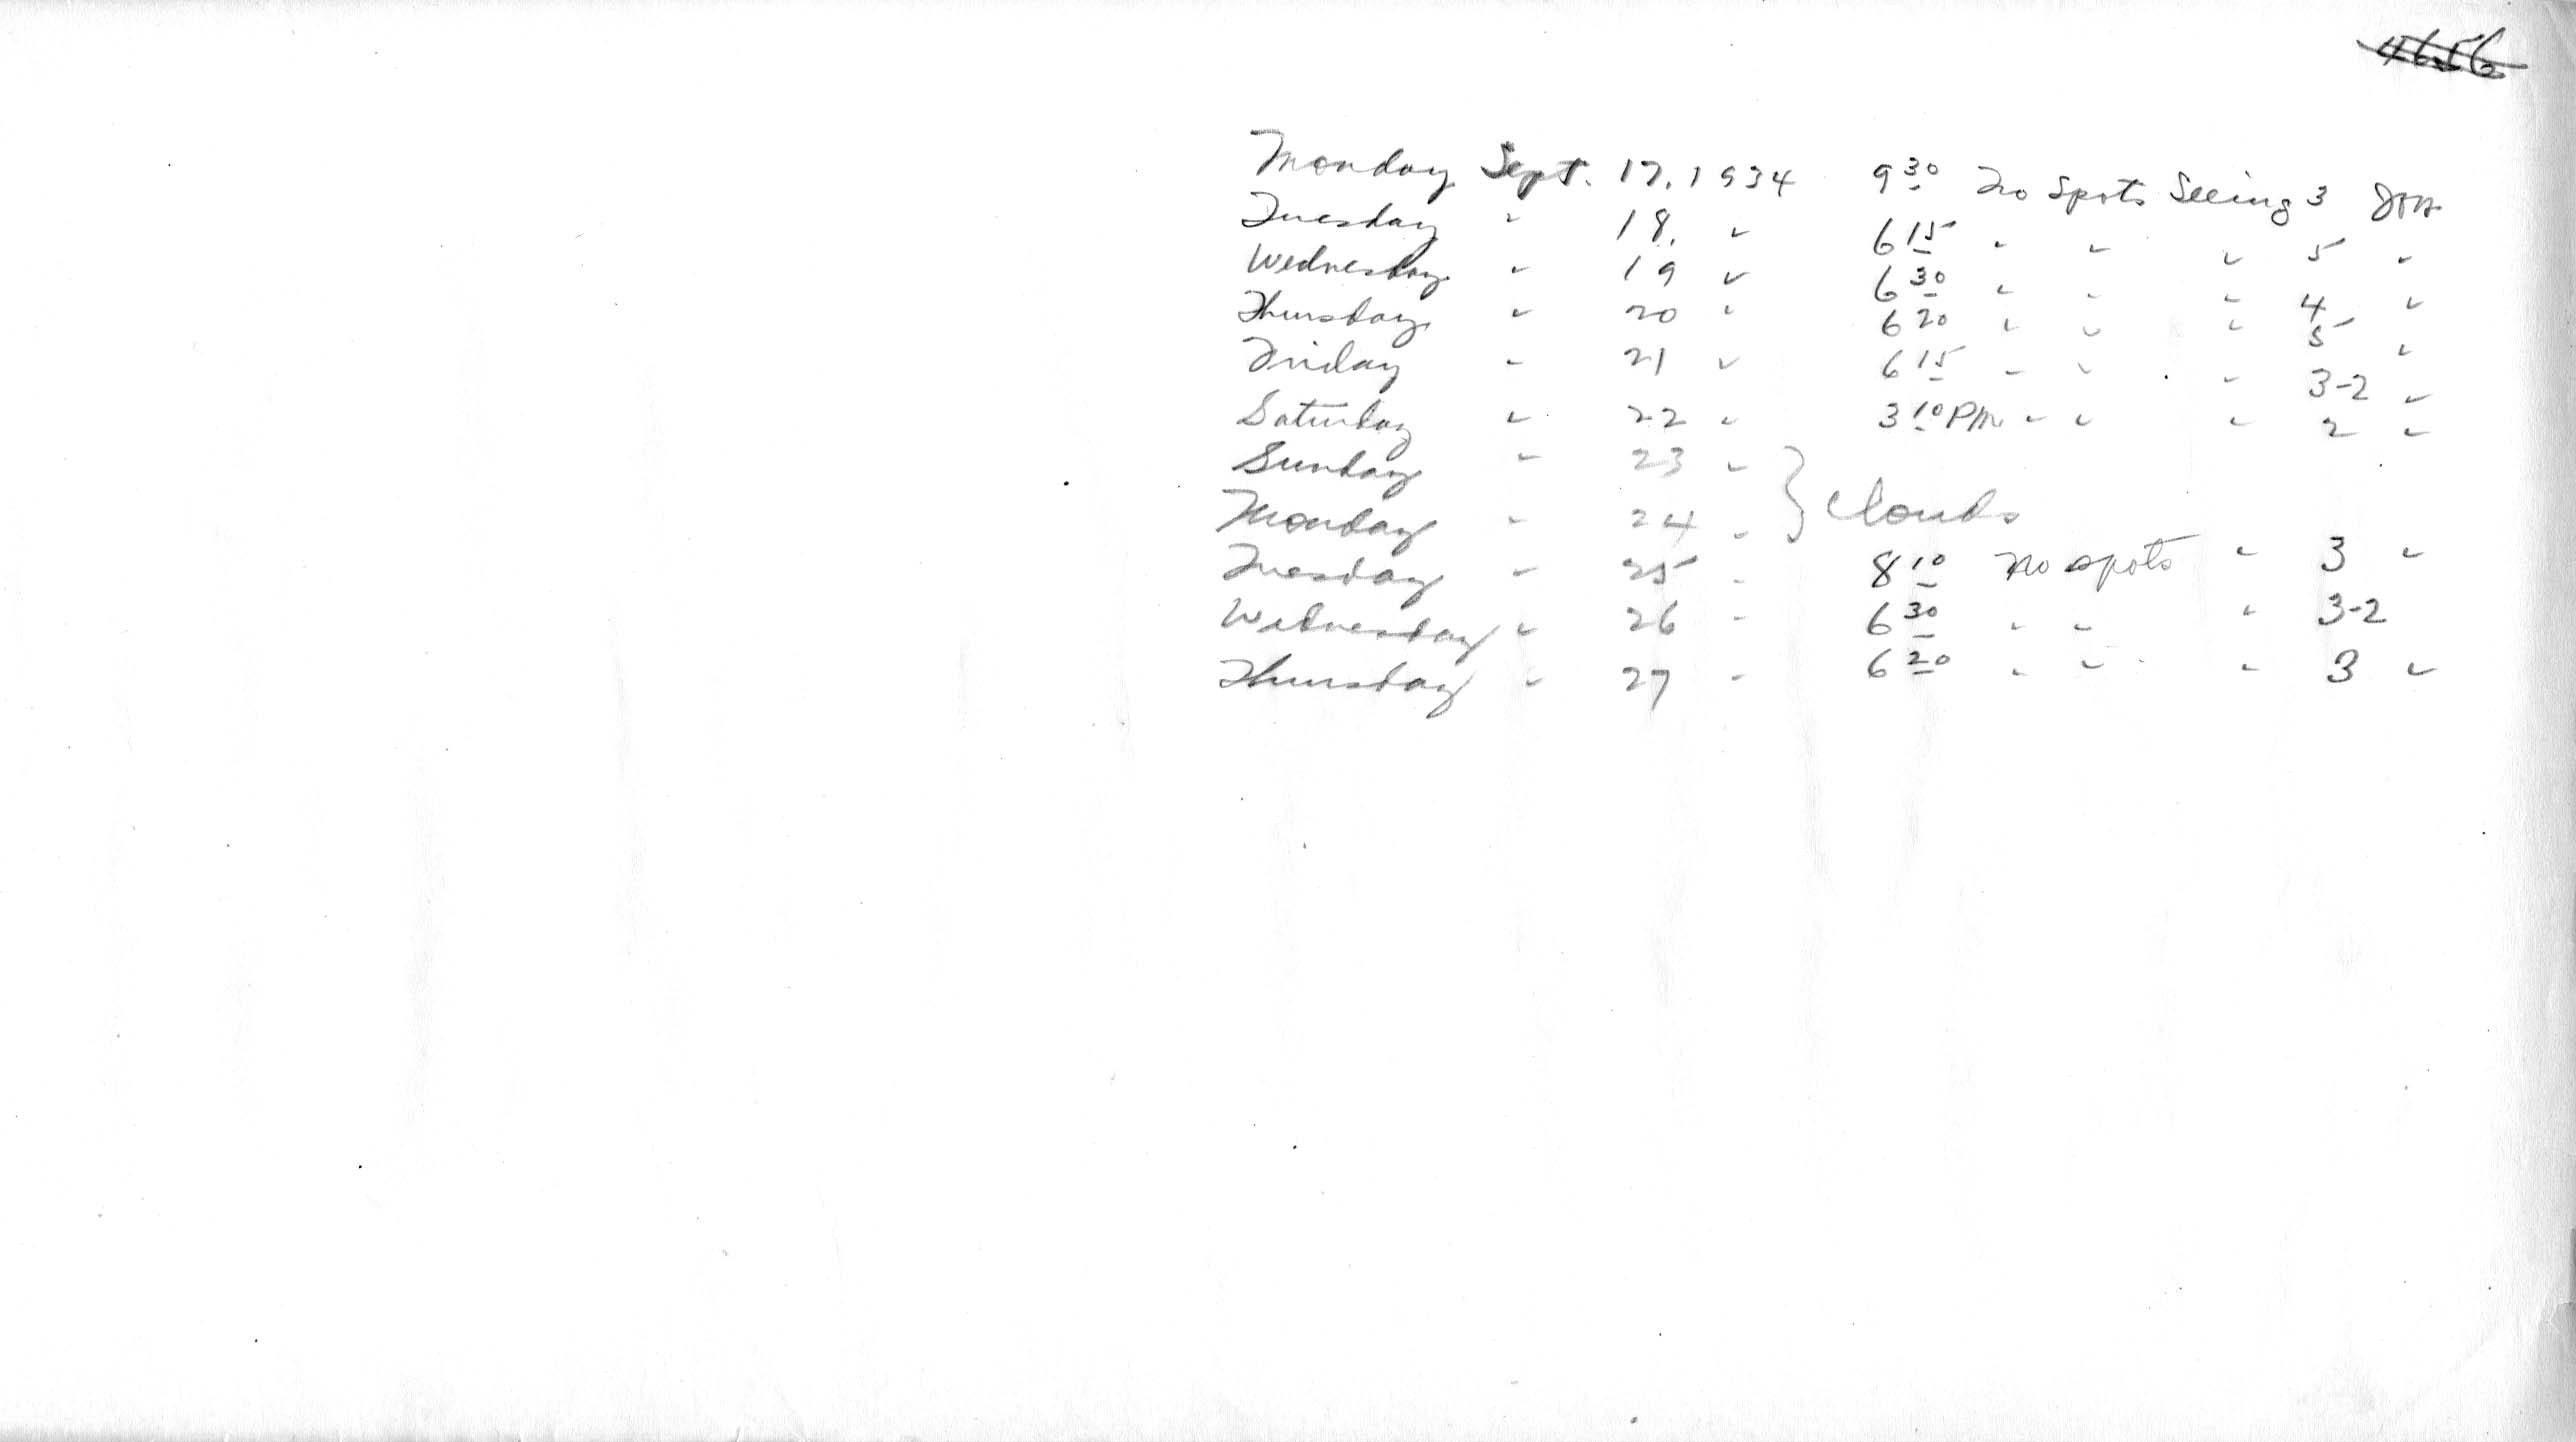 4656
Monday Sept. 17, 1934 9 30 No Spots Seeing 3
Tuesday " 18, " 6 15 " " " 5 "
Wednesday " 19 " 6 30 " " " 4 "
Thursday " 20 " 6 20 " " " 5 "
Friday " 21 " 6 15 " " " 3-2 "
Saturday " 22 " 3 10 PM " " " 2 "
Sunday " 23 "
Monday " 24 " } Clouds
Tuesday " 25 " 8 10 No spots " 3 "
Wednesday " 26 " 6 30 " " " 3-2
Thursday " 27 " 6 20 " " " 3 "